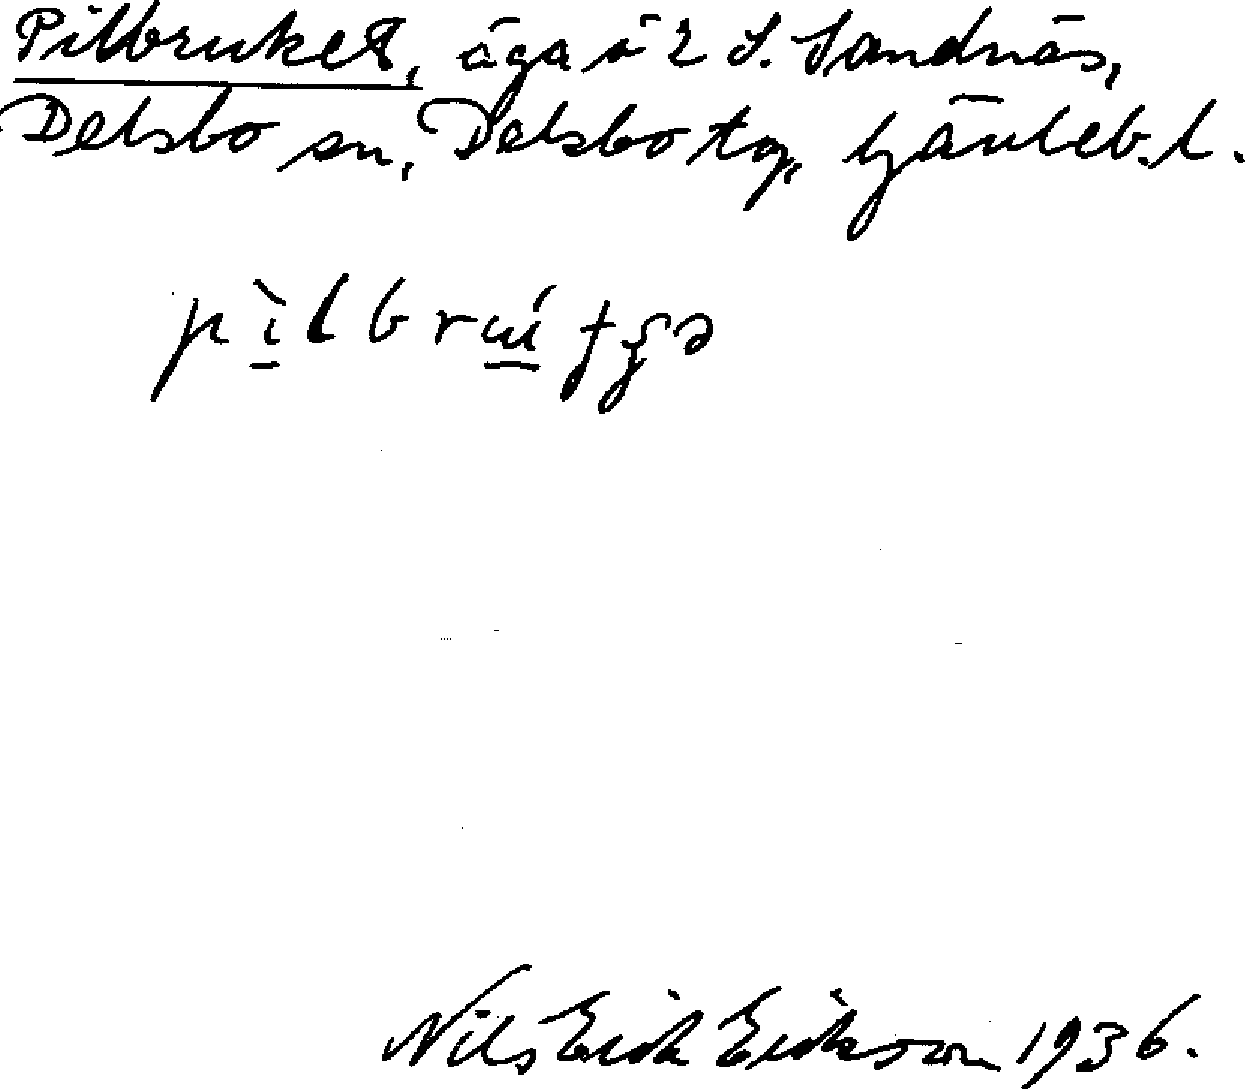 Pilbruket, äga å 2 S. Sandnäs,
Delsbo sn, Delsbo tg, Gävleb. l.
Nils Erik Erikson 1936.